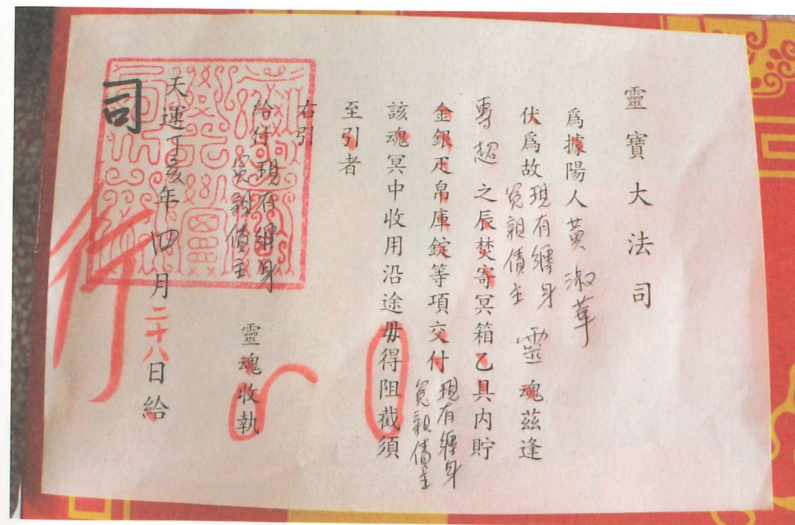 靈寶大法司
為據陽人黃淑華
伏為故現有纏身冤親債主靈魂茲逢
專超之辰焚寄冥箱乙具內貯
金銀疋帛庫錠等項交付現有纏身冤親債主
該魂冥中收用沿途毋得阻截須
至引者
右引
給付現有纏身冤親債主靈魂收執
天運丁亥年四月二十八日給
司
行